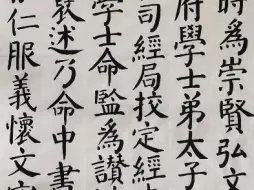 時為崇賢弘文
府學士弟太子
司經局挍定經
學士命監為讃
裝述乃命中書
仁服義懷文